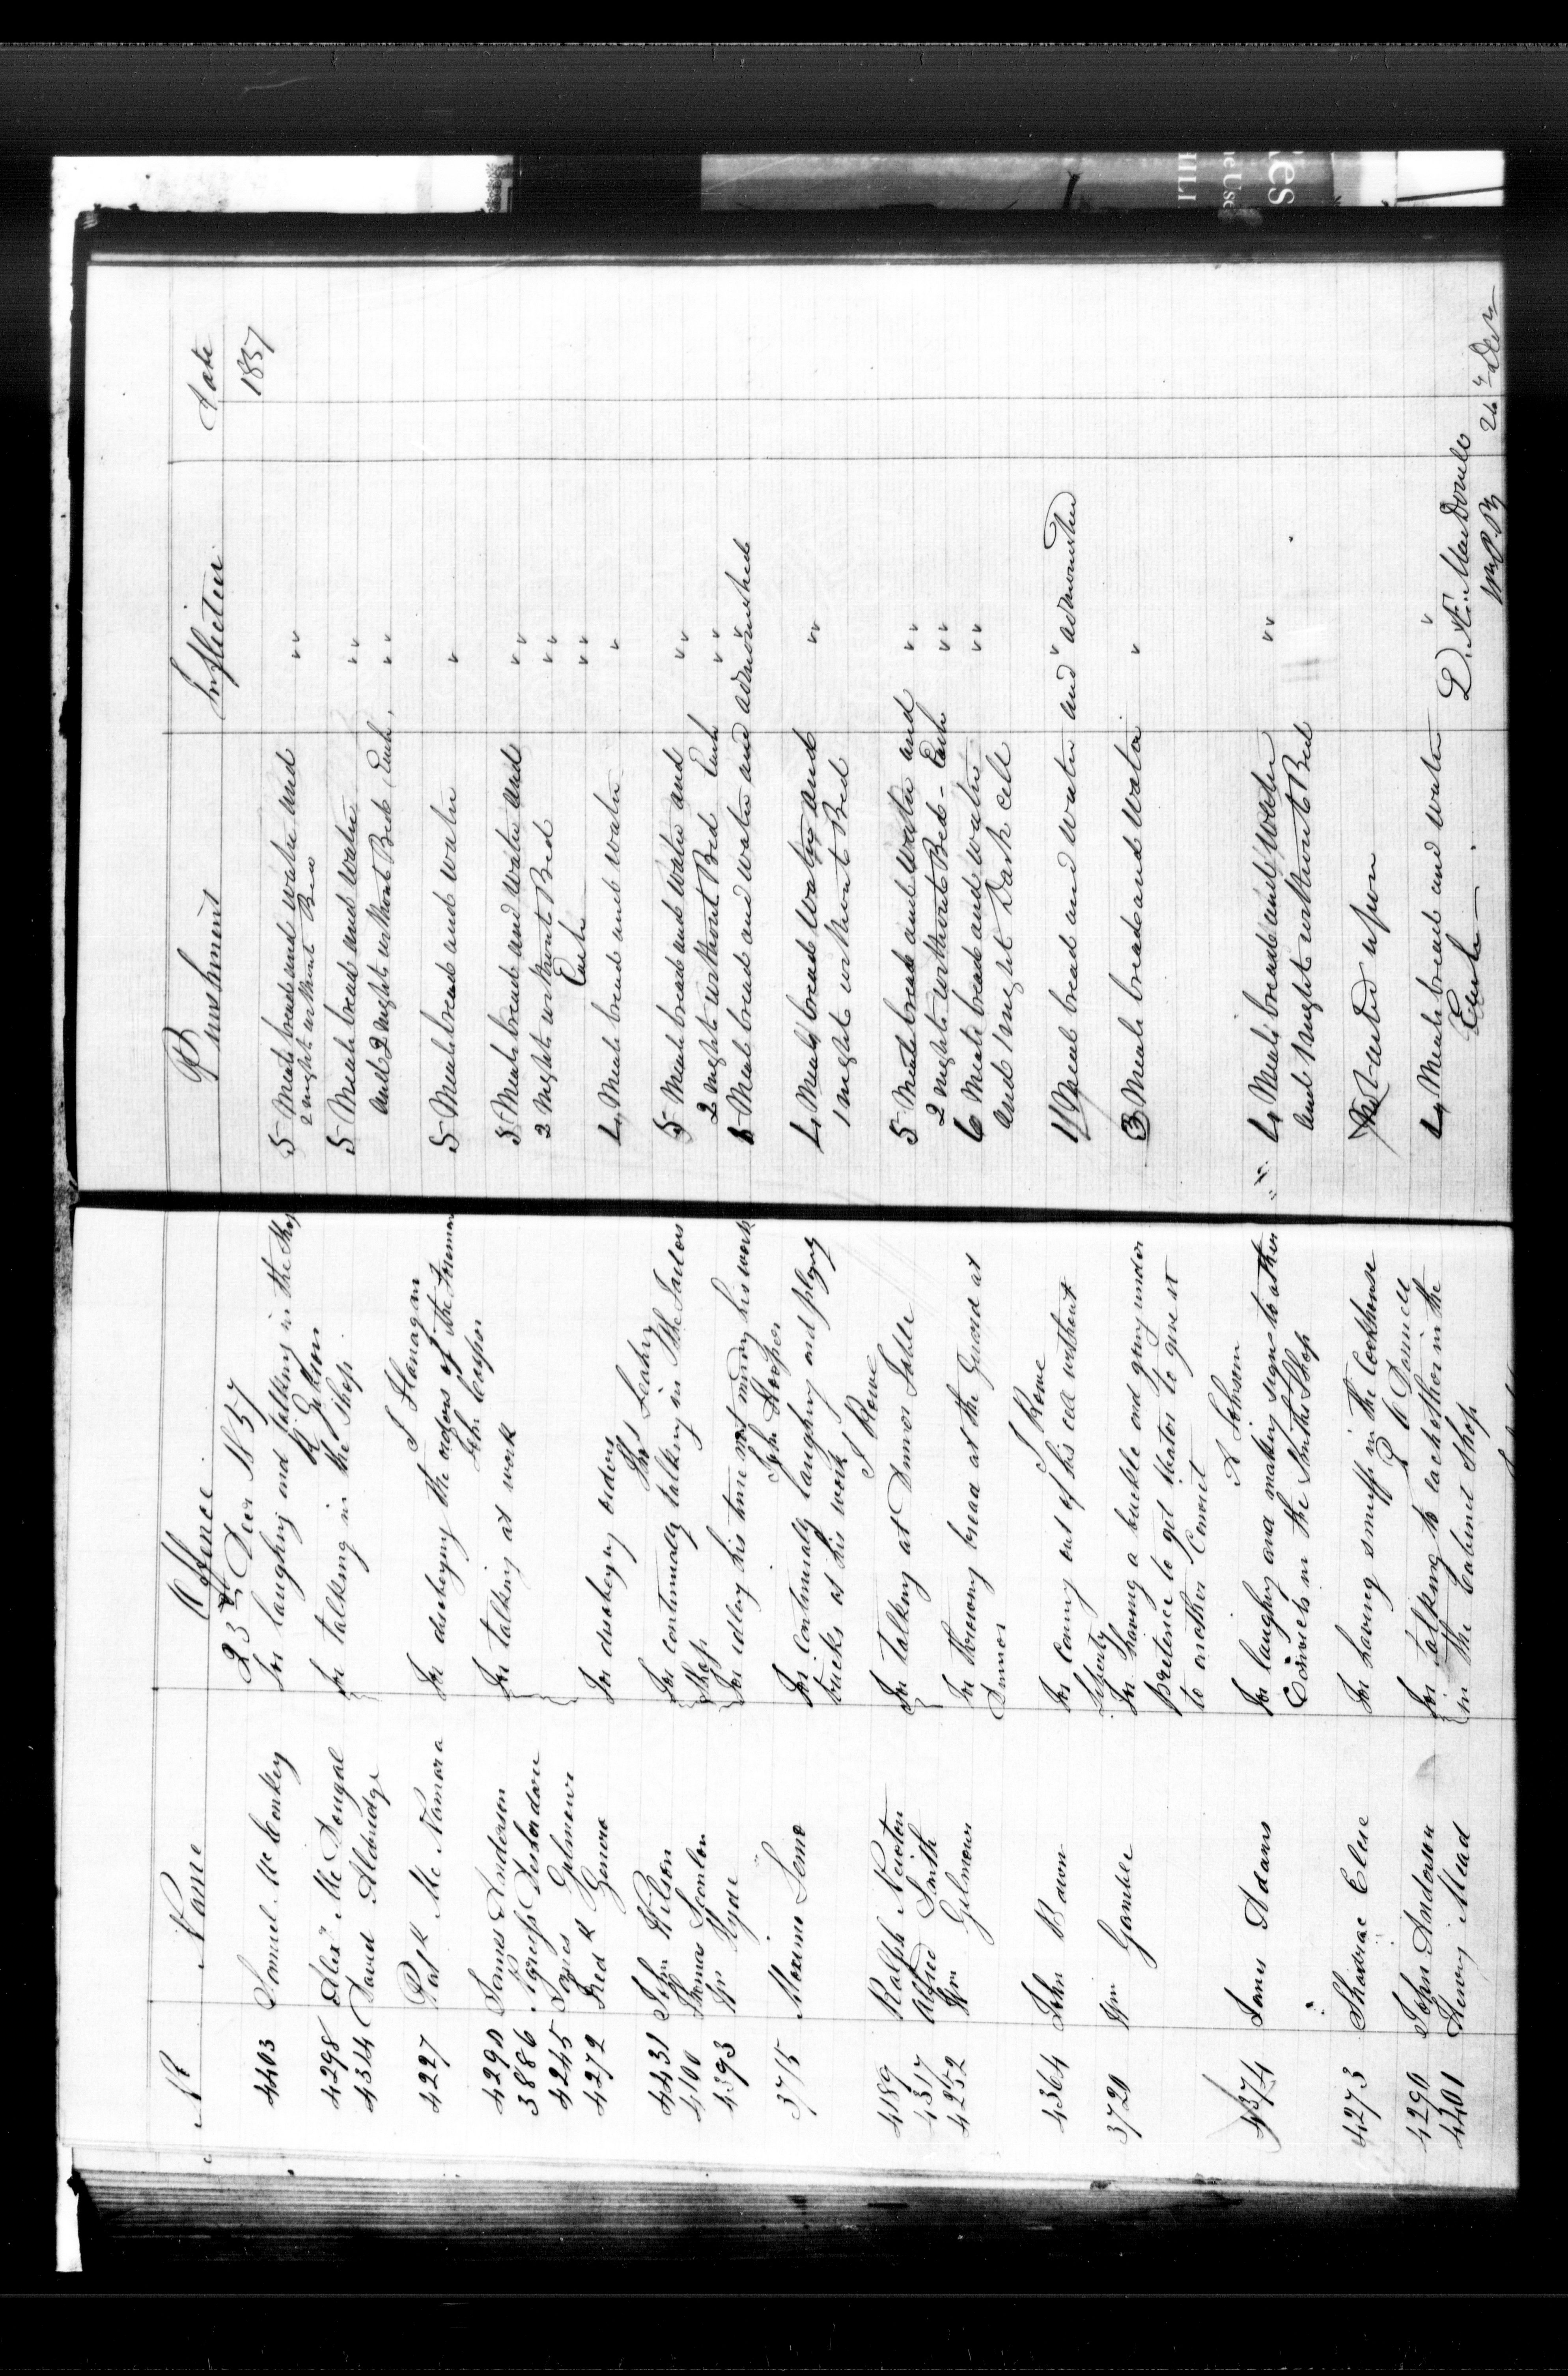 No Name Offence Punishment Infliction Date
23rd Decr 1857 1857
4403 Samuel McCorkey For laughing and talking in the Shop 5 Meals bread and water and " "
2 nights without Bed
4298 Alexr McDougal For talking in the Shop 5 Meals bread and water " "
4314 David Aldridge and 2 nights without Bed Each " "
J Flanagan
4227 Patk McNamara For disobeying the orders of the 5 Meals bread and water "
John Cooper
4290 James Anderson For talking at work 5 Meals bread and water and " "
3886 2 Nights without Bed " "
4245 James Gilmour Each " "
4272 Fredk For disobeying orders 4 Meals bread and water "
4431 John Wilson For continually talking in the Tailors 5 Meals bread and water and " "
4100 Thomas Scanlon Shop 2 nights without Bed Each " "
4393 Wm Hyde For idling his time not minding his work 6 Meals bread and water and admonished
John Hooper
3715 For continually laughing and playing 4 Meals bread water and " "
tricks at his work 1 night without Bed
J Rowe
4189 Ralph Newton For talking at Dinner Table 5 Meals bread and water and " "
4317 Alfred Smith 2 nights without Bed - Each " "
4252 Wm Gilmour For throwing bread at the Guard at 6 Meals bread and water " "
Dinner and 1 night Dark Cell
J Rowe
4364 John For coming out of his cell without 4 Meals bread and water and admonished "
liberty
3720 Wm Gamble For having a buckle and going under 3 Meals bread and water "
pretence to get water to give it
to another Convict
A Johnson
4374 James Adams For laughing and making signs to other 4 Meals bread and water " "
Convicts in the Smiths Shop and 1 night without Bed
4273 Shadrac Cline For having snuff in the Cookhouse Not upon
4290 John Anderson For talking to each other in the 4 Meals bread and water "
4201 Henry Mead in the Cabinet Shop Each
D. Æ. MacDonell
26th Decr